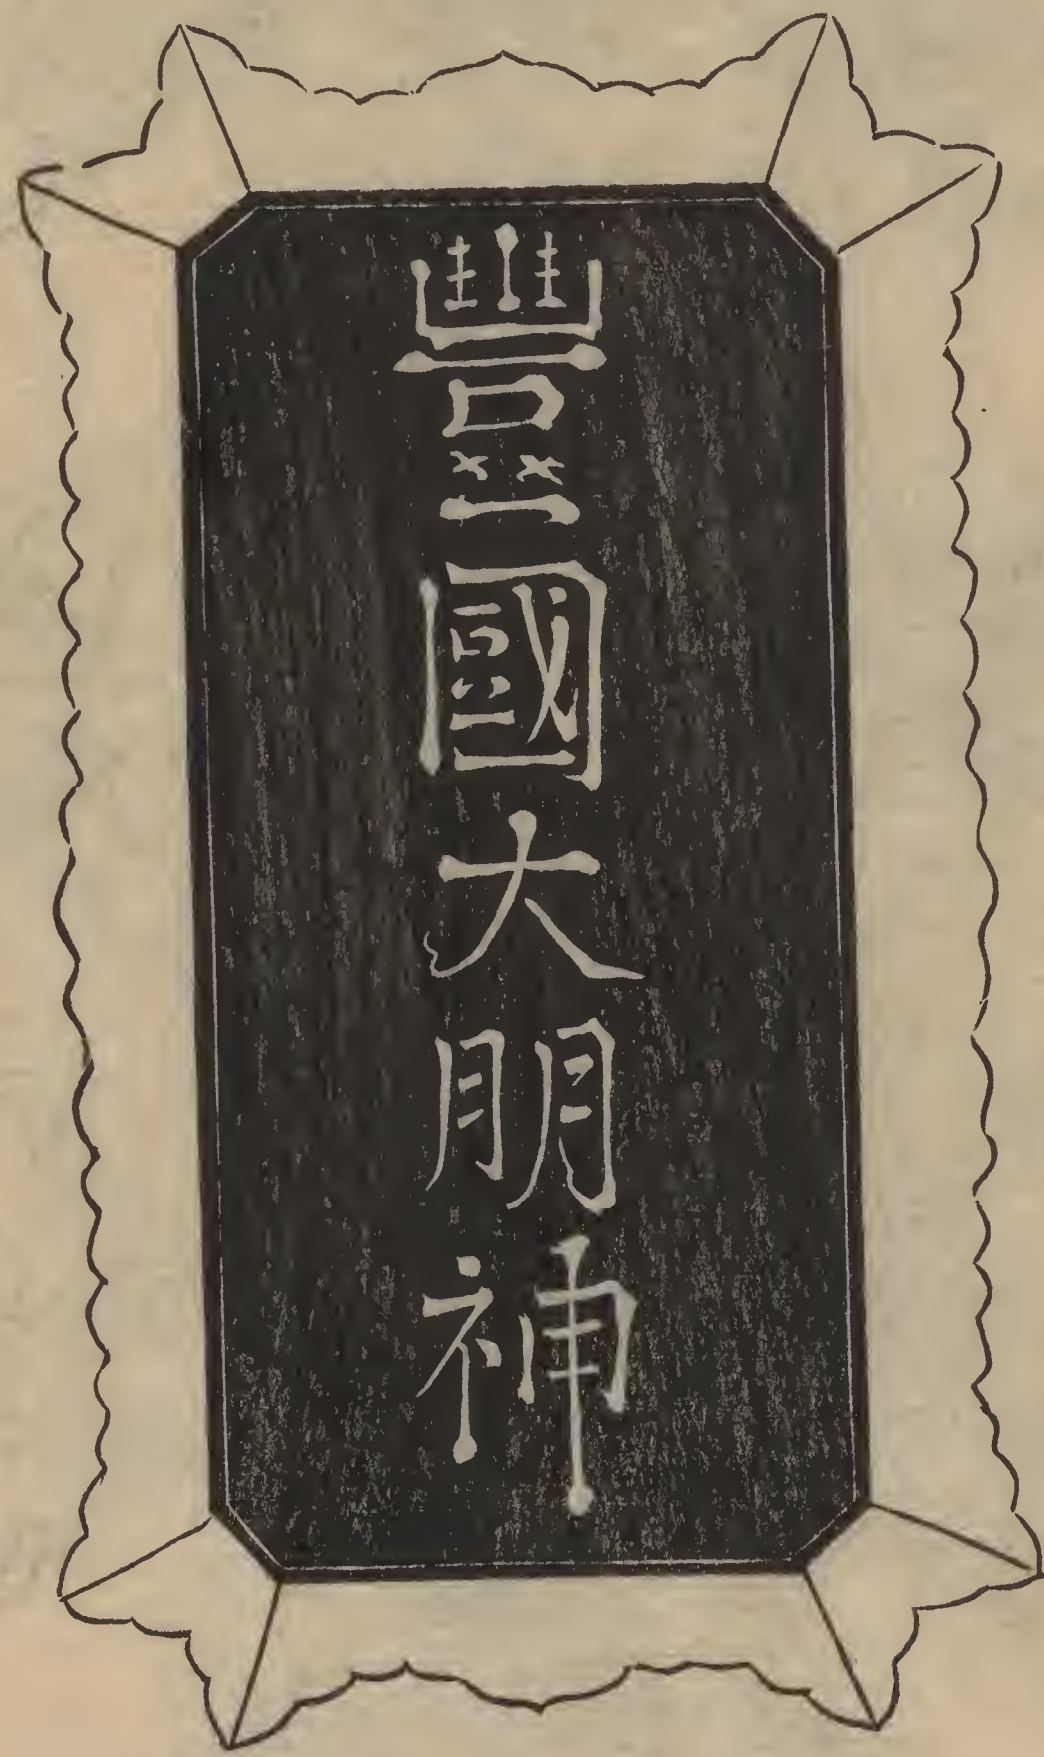 豐國大明神